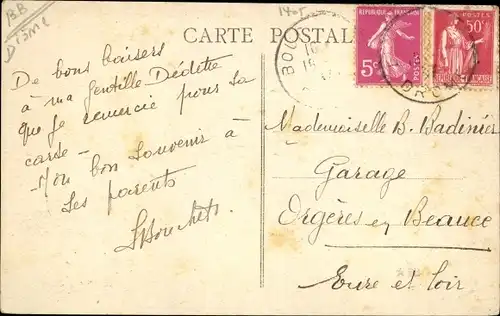 B.B
Drôme
14-5
CARTE POSTALE
REPUBLIQUE FRANÇAISE
5c
POSTES
POSTES
50c
DRO
De bons baisers
à ma gentille Dédette
que je remercie pour sa
carte -
Mon bon souvenir à
Ses parents
Mademoiselle B. Badinier
Garage
Orgères en Beauce
Eure et Loir